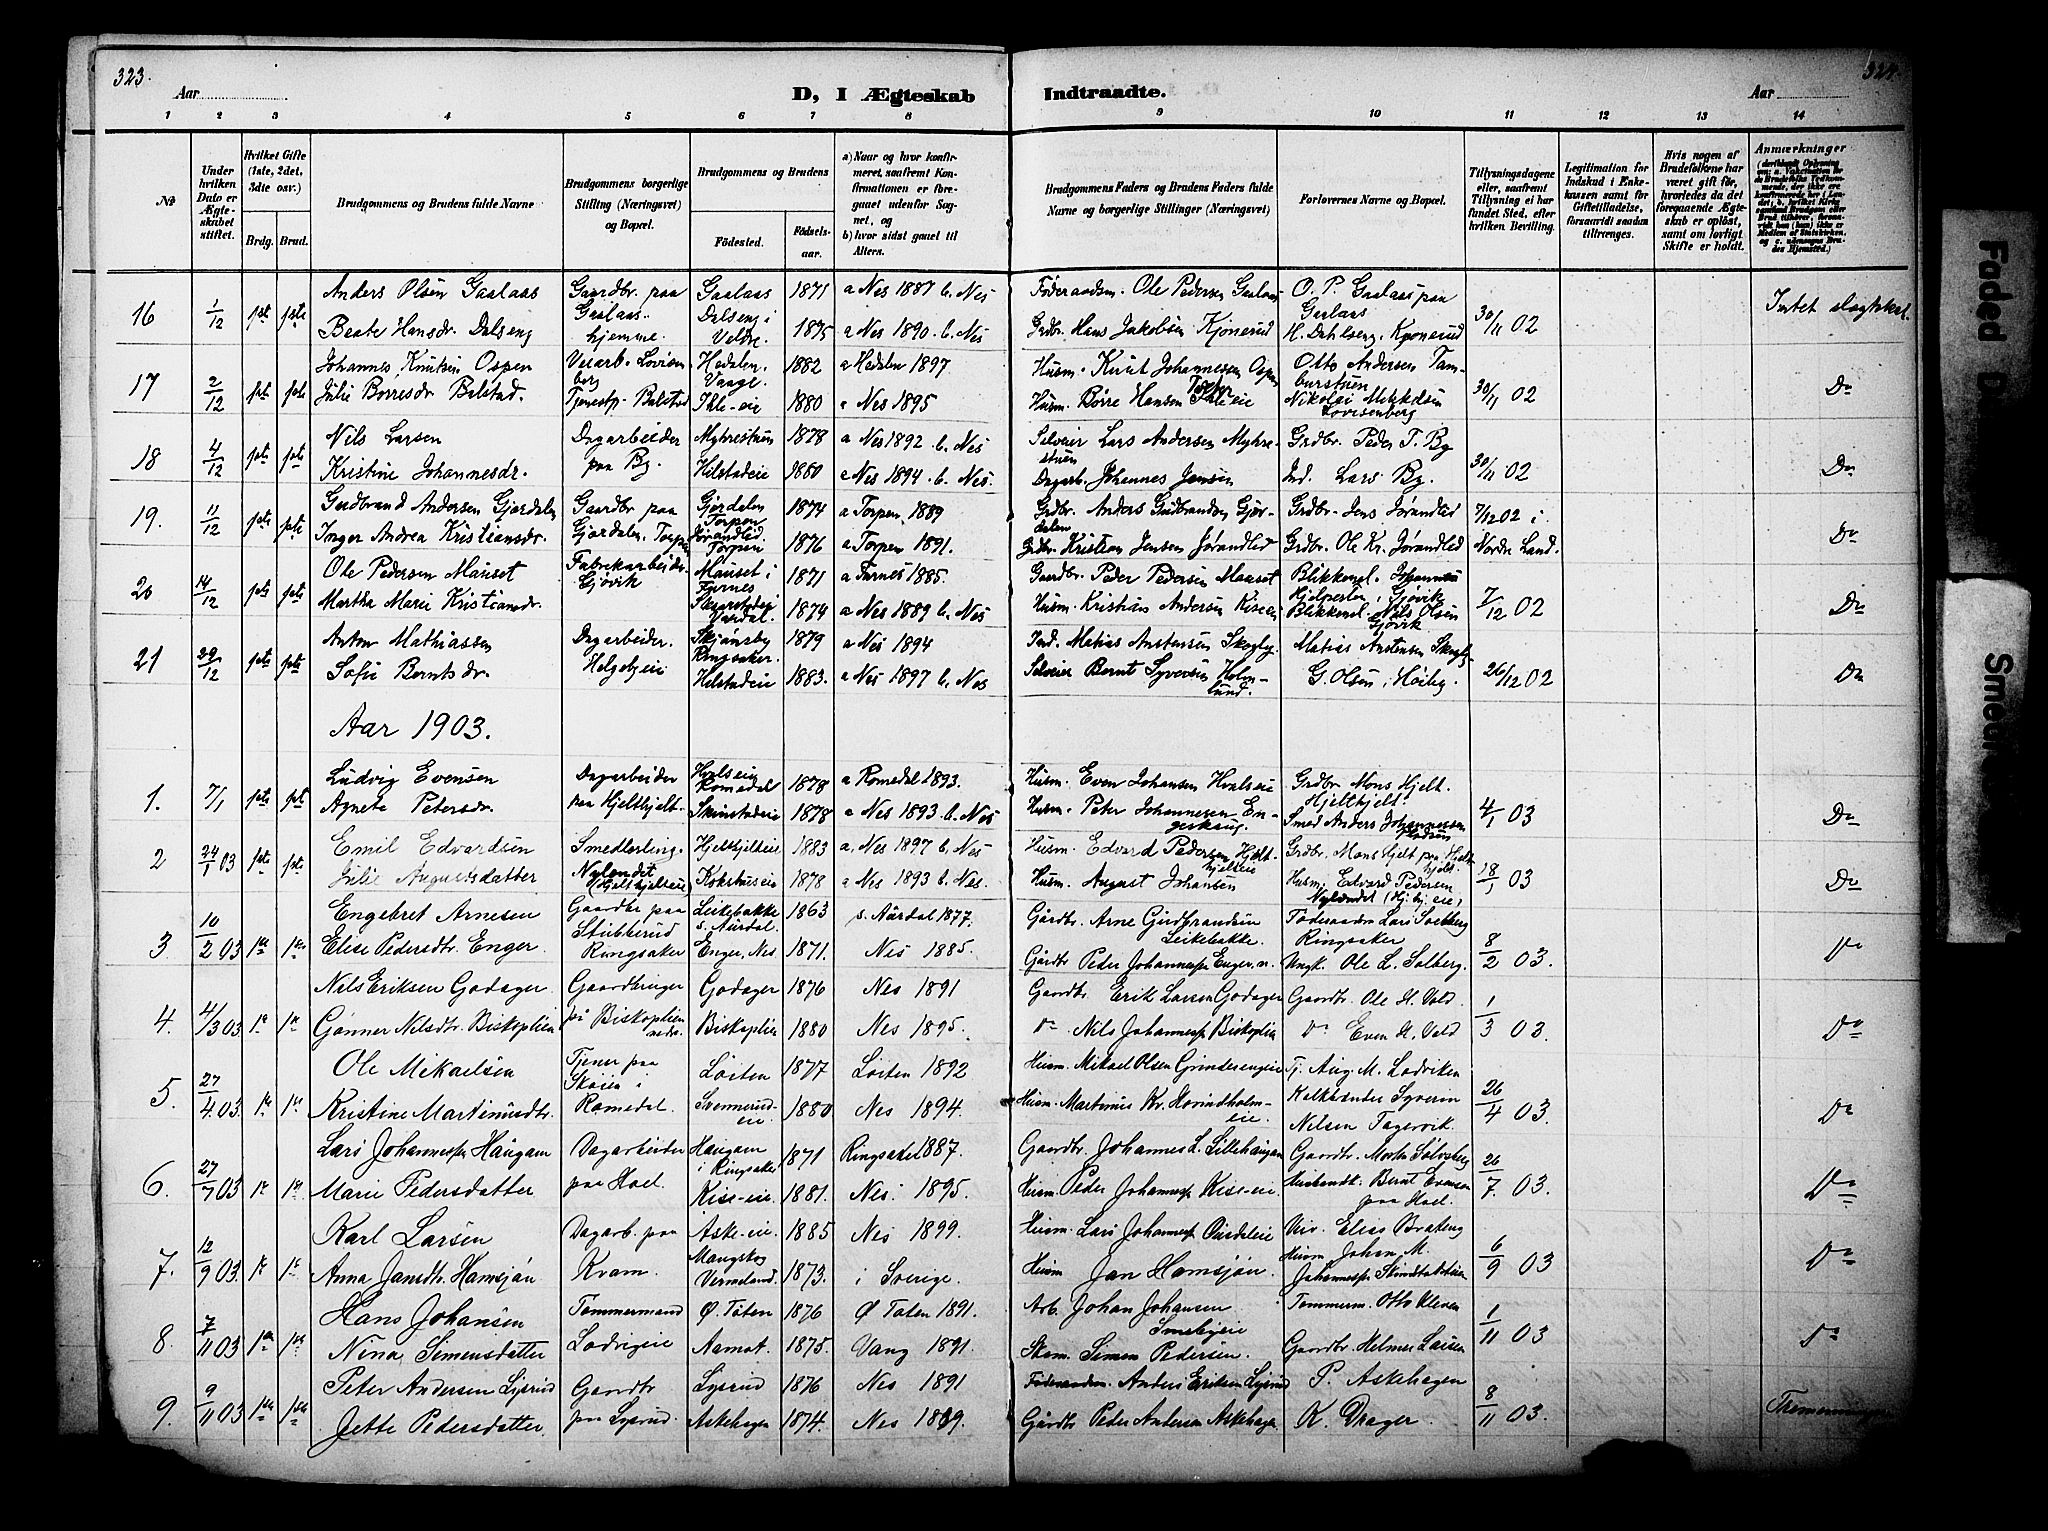 323.
324.
Aar
D, I Ægteskab
Indtraadte.
Aar
1 2 3 4 5 6 7 8 9 10 11 12 13 14
No
Under hvilken Dato er Ægteskabet stiftet.
Hvilket Gifte (1ste, 2det, 3die osv.)
Brdg. Brud.
Brudgommens og Brudens fulde Navne
Brudgommens borgerlige Stilling (Næringsvei) og Bopæl.
Brudgommens og Brudens
Födested. Födselsaar.
a) Naar og hvor konfirmeret, saafremt Konfirmationen er foregaaet udenfor Sognet, og
b) hvor sidst gaaet til Alters.
Brudgommens Faders og Brudens Faders fulde Navne og borgerlige Stillinger (Næringsvei)
Forlovernes Navne og Bopæl.
Tillysningsdagene eller, saafremt Tillysning ei har fundet Sted, efter hvilken Bevilling.
Legitimation for Indskud i Enkekassen samt for Giftetilladelse, forsaavidt saadan tiltrænges.
Hvis nogen af Brudefolkene har været gift før, hvorledes da det foregaaende Ægteskab er opløst, samt om lovligt Skifte er holdt.
Anmærkninger
16 1/12 1ste 1ste Anders Olsen Gaalaas Gaardbr. paa Gaalaas Gaalaas 1871 a Nes 1887 b. Nes Føderaadsm. Ole Pedersen Gaalaas O. P. Gaalaas paa Gaalaas 30/11 02 Intet slægtskab.
Beate Hansdr. Dalseng hjemme. Dalseng i Veldre. 1875 a Nes 1890. b. Nes Grdbr. Hans Jakobsen Kjønerud H. Dahlseng, Kjønerud
17 2/12 1ste 1ste Johannes Knutsen Ospen Veiarb. Lovisenberg Hedalen, Vaage. 1882 a Hedalen 1897 Husm. Knut Johannesen Ospen Otto Andersen Tamburstuen 30/11 02 Do
Julie Børresdr. Balstad. Tjenestp. Balstad Ihle-eie 1880 a Nes 1895 Husm. Børre Hansen Ihle eie Nikolai Mikkelsen Lovisenberg
18 4/12 1ste 1ste Nils Larsen Dagarbeider paa By. Myhrestuen 1878 a Nes 1892 b. Nes Selveier Lars Andersen Myhrestuen Grdbr. Peder T. By 30/11 02 Do
Kristine Johannesdr. Helstadeie 1880 a Nes 1894. b. Nes. Dagarb. Johannes Jensen Ind. Lars By.
19. 11/12 1ste 1ste Gudbrand Andersen Gjørdalen Gaardbr. paa Gjørdalen, Torpen Gjørdalen Torpen 1874 a Torpen 1889 Grdbr. Anders Gudbrandsen Gjørdalen Grdbr. Jens Jørandlid 7/12 02 i Nordre Land. Do
Inger Andrea Kristiansdr. Jørandlid Torpen 1876 a Torpen 1891. Grdbr. Kristian Jensen Jørandlid Grdbr. Ole Kr. Jørandlid
20 14/12 1ste 1ste Ole Pedersen Mauset Fabrikarbeider Gjøvik Mauset i 1871 1885. Gaardbr. Peder Pedersen Mauset Blikkensl. Johannes Gjøvik 7/12 02 Do
Martha Marie Kristiansdr. Vardal. 1874 a Nes 1889 b. Nes Husm. Kristian Andersen Kiseeie Blikkensl. Nils Olsen Gjøvik
21 29/12 1ste 1ste Anton Mathiassen Dagarbeider. Helgebyeie Ringsaker. 1879 a Nes 1894 Ind. Matias Anstensen Skogly Matias Anstensen Skogly 26/12 02 Do
Sofie Berntsdr. Helstadeie 1883. a Nes 1897 b. Nes Selveier Bernt Syversen Holmlund. G. Olsen i Høiby.
Aar 1903.
1. 7/1 1ste 1ste Ludvig Evensen Dagarbeider paa Hjelthjelt. Hvalseie Romedal 1878 a Romedal 1893. Husm. Even Johansen Hvalseie Grdbr. Mons Hjelt. Hjelthjelt. 4/1 03 Do
Agnete Petersdr. Skinstadeie 1878 a Nes 1893 b. Nes Husm. Peter Johannesen Engeskaug. Smed Anders Johannessen
2 24/1 03 1ste 1ste Emil Edvardsen Smedlerling Nylendet Hjelthjelteie Hjelthjelteie 1883 a. Nes 1897 b. Nes Husm. Edvard Pedersen Hjelthjelteie Grdbr. Mons Hjelt paa Hjelthjelt 18/1 03 Do
Julie Augustsdatter Kokshuseie 1878 a Nes 1893 b. Nes. Husm. August Johansen Husm. Edvard Pedersen Nylændet (Hj.hj.eie)
3 10/2 03 1ste 1ste Engebret Arnesen Gaardbr paa Stubberud Ringsaker Leikebakke s. Aurdal. 1863 s. Aurdal 1877. Gårdbr. Arne Gudbrandsen Leikebakke. Føderaadsm Lars Solberg Ringsaker 8/2 03. Do
Elise Pedersdtr. Enger. Enger, Nes 1871. Nes 1885. Gårdbr Peder Johannessen Enger, n. Ungk. Ole L. Solberg.
4. 4/3 03 1e 1e Nils Eriksen Godager. Gaardbruger på Biskoplien nedre. Godager 1876 Nes 1891 Gaardbr. Erik Larsen Godager Gaardbr. Ole H. Vold. 1/3 03. Do
Gunner Nilsdtr. Biskoplien Biskoplien 1880 Nes 1895. Do Nils Johannessen Biskoplien Do Even H. Vold
5. 27/4 03. 1e 1e Ole Mikaelsen Tjener paa Skøien i Romedal. Løiten 1877 Løiten 1892 Husm. Mikael Olsen Grinderengeie Tj. Aug. M. Lodviken 26/4 03. Do
Kristine Martinusdtr. Svennerudeie 1880 Nes 1894. Husm. Martinus Kr. Hovindholmeie. Kalkbrænder Syverin Nilsen Tagervik.
6. 27/7 03 1e 1e Lars Johannessen Haugam Dagarbeider paa Hoel. Haugam i Ringsaker 1871 Ringsaker 1887. Gaardbr. Johannes L. Lillehaugen Gaardbr. Morten Sølvsberg 26/7. 03. Do
Marie Pedersdatter Kise-eie 1881. Nes. 1895. Husm. Peder Johannessen Kise-eie. Husbondk. Bernt Evensen paa Hoel.
7. 12/9 03. 1e 1e Karl Larsen Dagarb. paa Kvam. Aske-eie. 1885 Nes 1899. Husm. Lars Johannessen Ousdeleie Uiv. Elias Brateng 6/9 03 Do
Anna Jansdtr. Hamsjön Mangskog Vermeland. 1873. i Sverige. Husm Jan Hamsjön. Husm Johan M. Johannessen
8. 7/11 03 1ste 1ste Hans Johansen Tømmermand Lodvigeie Ø. Toten 1876 Ø Toten 1891. Arb. Johan Johansen Smebyeie Tømmerm. Otto Kleven 1/11 03 Do
Nina Simensdatter Aamot. 1875. Vang 1891. Skom. Simen Pedersen. Gaardbr. Helmer Larsen
9. 9/11 03 1ste 1ste Peter Andersen Lysrud Gaardbr paa Lysrud. Lysrud 1876 Nes 1891 Føderaadsm. Anders Eriksen Lysrud P. Askehagen 8/11 03. Tremenninger
Jette Pedersdatter Askehagen 1874. Nes 1889. Gårdbr Peder Andersen Askehagen K. Drager.
Faded D
Smear